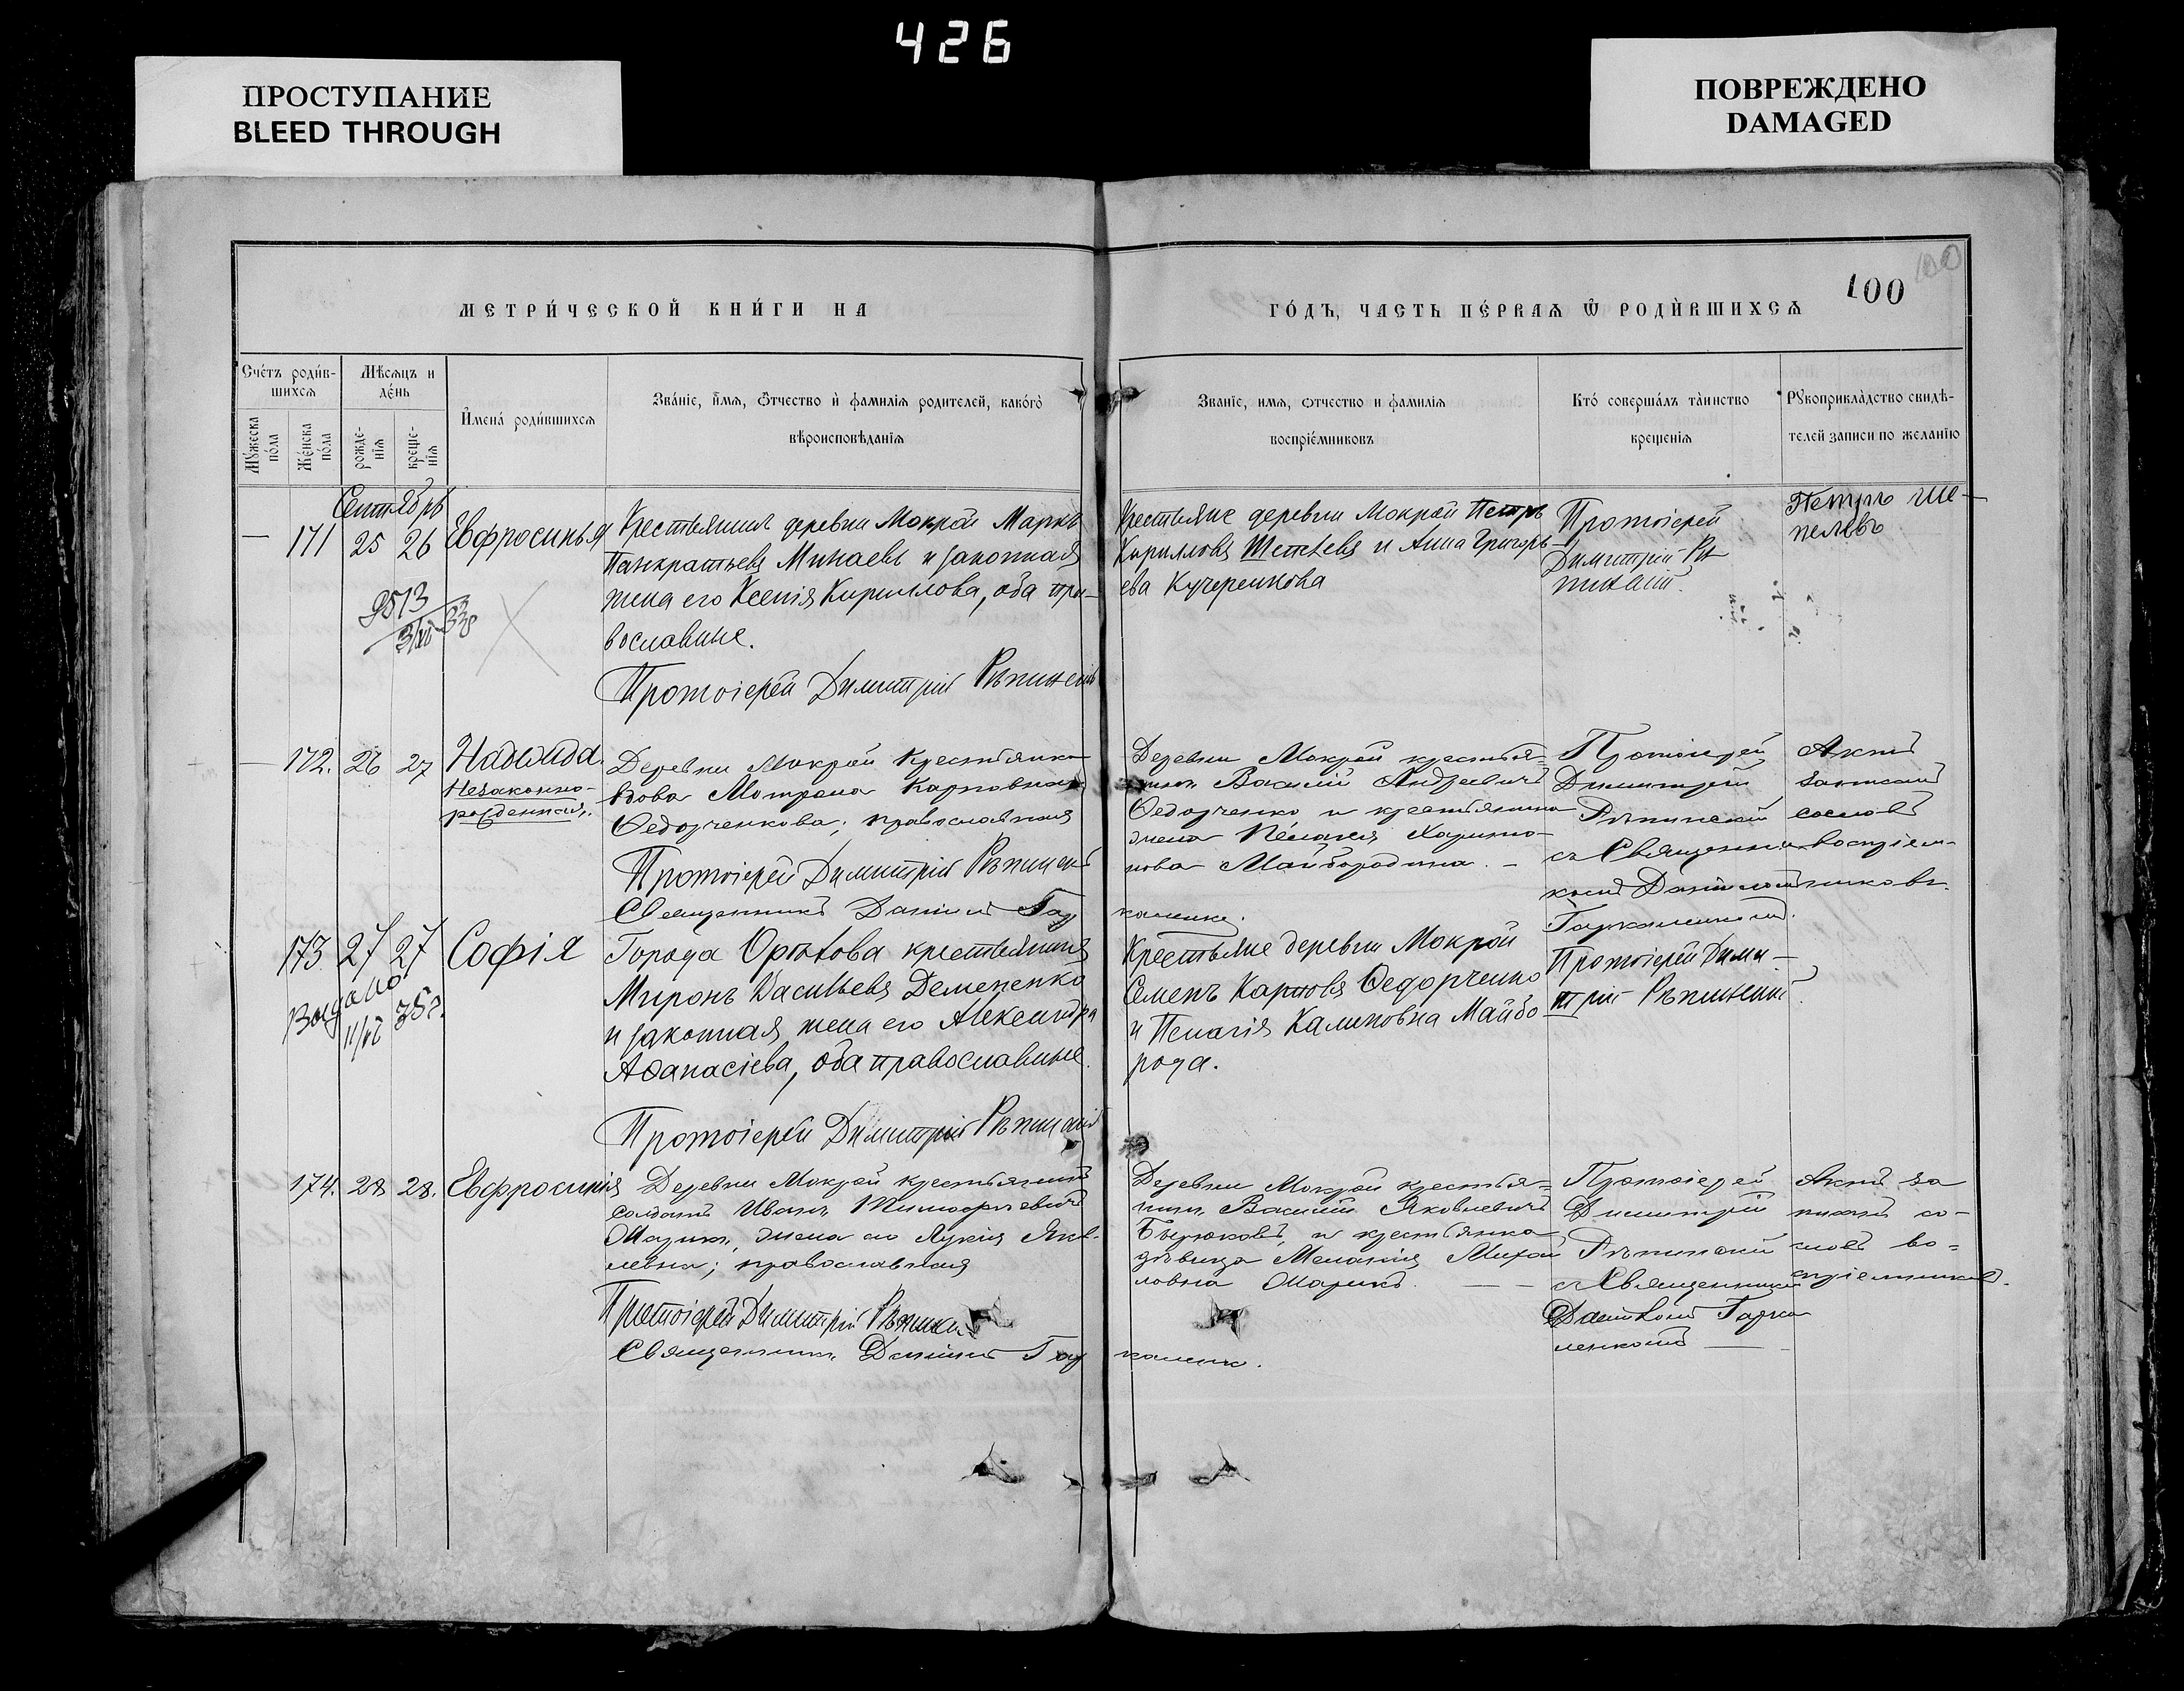 426
ПРОСТУПАНИЕ
BLEED THROUGH
ПОВРЕЖДЕНО
DAMAGED
100
МЕТРИ́ЧЕСКОЙ КНИ́ГИ НА
ГО́ДЪ, ЧАСТЬ ПЕ́РВАѦ Ѿ РОДИ́ВШИХСѦ
Сче́тъ роди́в-
шихсѧ
Мѣсѧцъ и
де́нь
Мꙋ́жеска по́ла
Же́нска по́ла
рожде-
нїѧ
креще-
нїѧ
И҆мена́ роди́вшихсѧ
Зва́нїе, и҆́мѧ, ѻ҆́тчество и҆ фамилїѧ родителей, како́го
вѣроисповѣданїѧ
Званїе, имѧ, ѻтчество и фамилїѧ
воспрїе́мниковъ
Кто́ соверша́лъ та̀инство
креще́нїѧ
Рꙋкоприкла́дство свидѣ-
телей записи по желанїю
Сентябрь
— 171 25 26 Евфросинья
Крестьянинъ деревни Мокрой Маркъ
Панкратьевъ Минаевъ и законная
жена его Ксенія Кириллова, оба пра-
вославные.
Протоіерей Димитрій Рѣпинскій
Крестьяне деревни Мокрой Петръ
Кирилловъ и Анна Григорь-
ева Кучеренкова
Протоіерей
Димитрій Рѣ-
пинскій.
Петръ Ше-
пелевъ
9513
— 172. 26 27 Надежда.
Незаконно-
рожденная.
Деревни Мокрой крестьянка
вдова Матрона Карповна
Ѳедорченкова; православная
Протоіерей Димитрій Рѣпинскій
Священникъ Даніилъ Гар
каленко.
Деревни Мокрой крестья-
нинъ Василій Андреевичъ
Ѳедорченко и крестьянина
жена Пелагея
нова Майбородина. —
Протоіерей
Димитрій
Рѣпинскій
съ Священни-
комъ Даніиломъ
Актъ
записанъ
со словъ
воспріем-
никовъ.
173. 27 27 Софія
Выдано
35 г.
Города Орѣхова крестьянинъ
Миронъ Васильевъ Демененко
и законная жена его Александра
Аѳанасіева, оба православные.
Протоіерей Димитрій Рѣпинскій
Крестьяне деревни Мокрой
Семенъ Карповъ Ѳедорченко
и Пелагія Калиновна Майбо-
рода.
Протоіерей Дими-
трій Рѣпинскій.
174. 28 28. Евфросинія
Деревни Мокрой крестьянинъ
солдатъ Иванъ Тимофеевичъ
жена его Лукія Яков-
левна; православная
Протоіерей Димитрій Рѣпинскій
Священникъ Даніилъ Гар
каленко.
Деревни Мокрой крестья-
нинъ Василій Яковлевичъ
Бирюковъ, и крестьянка
дѣвица Меланія Михай
ловна — —
Протоіерей
Димитрій
Рѣпинскій
съ Священникомъ
Даніиломъ Гарка
ленкомъ —
Актъ за
писанъ со
словъ во-
спріемниковъ.